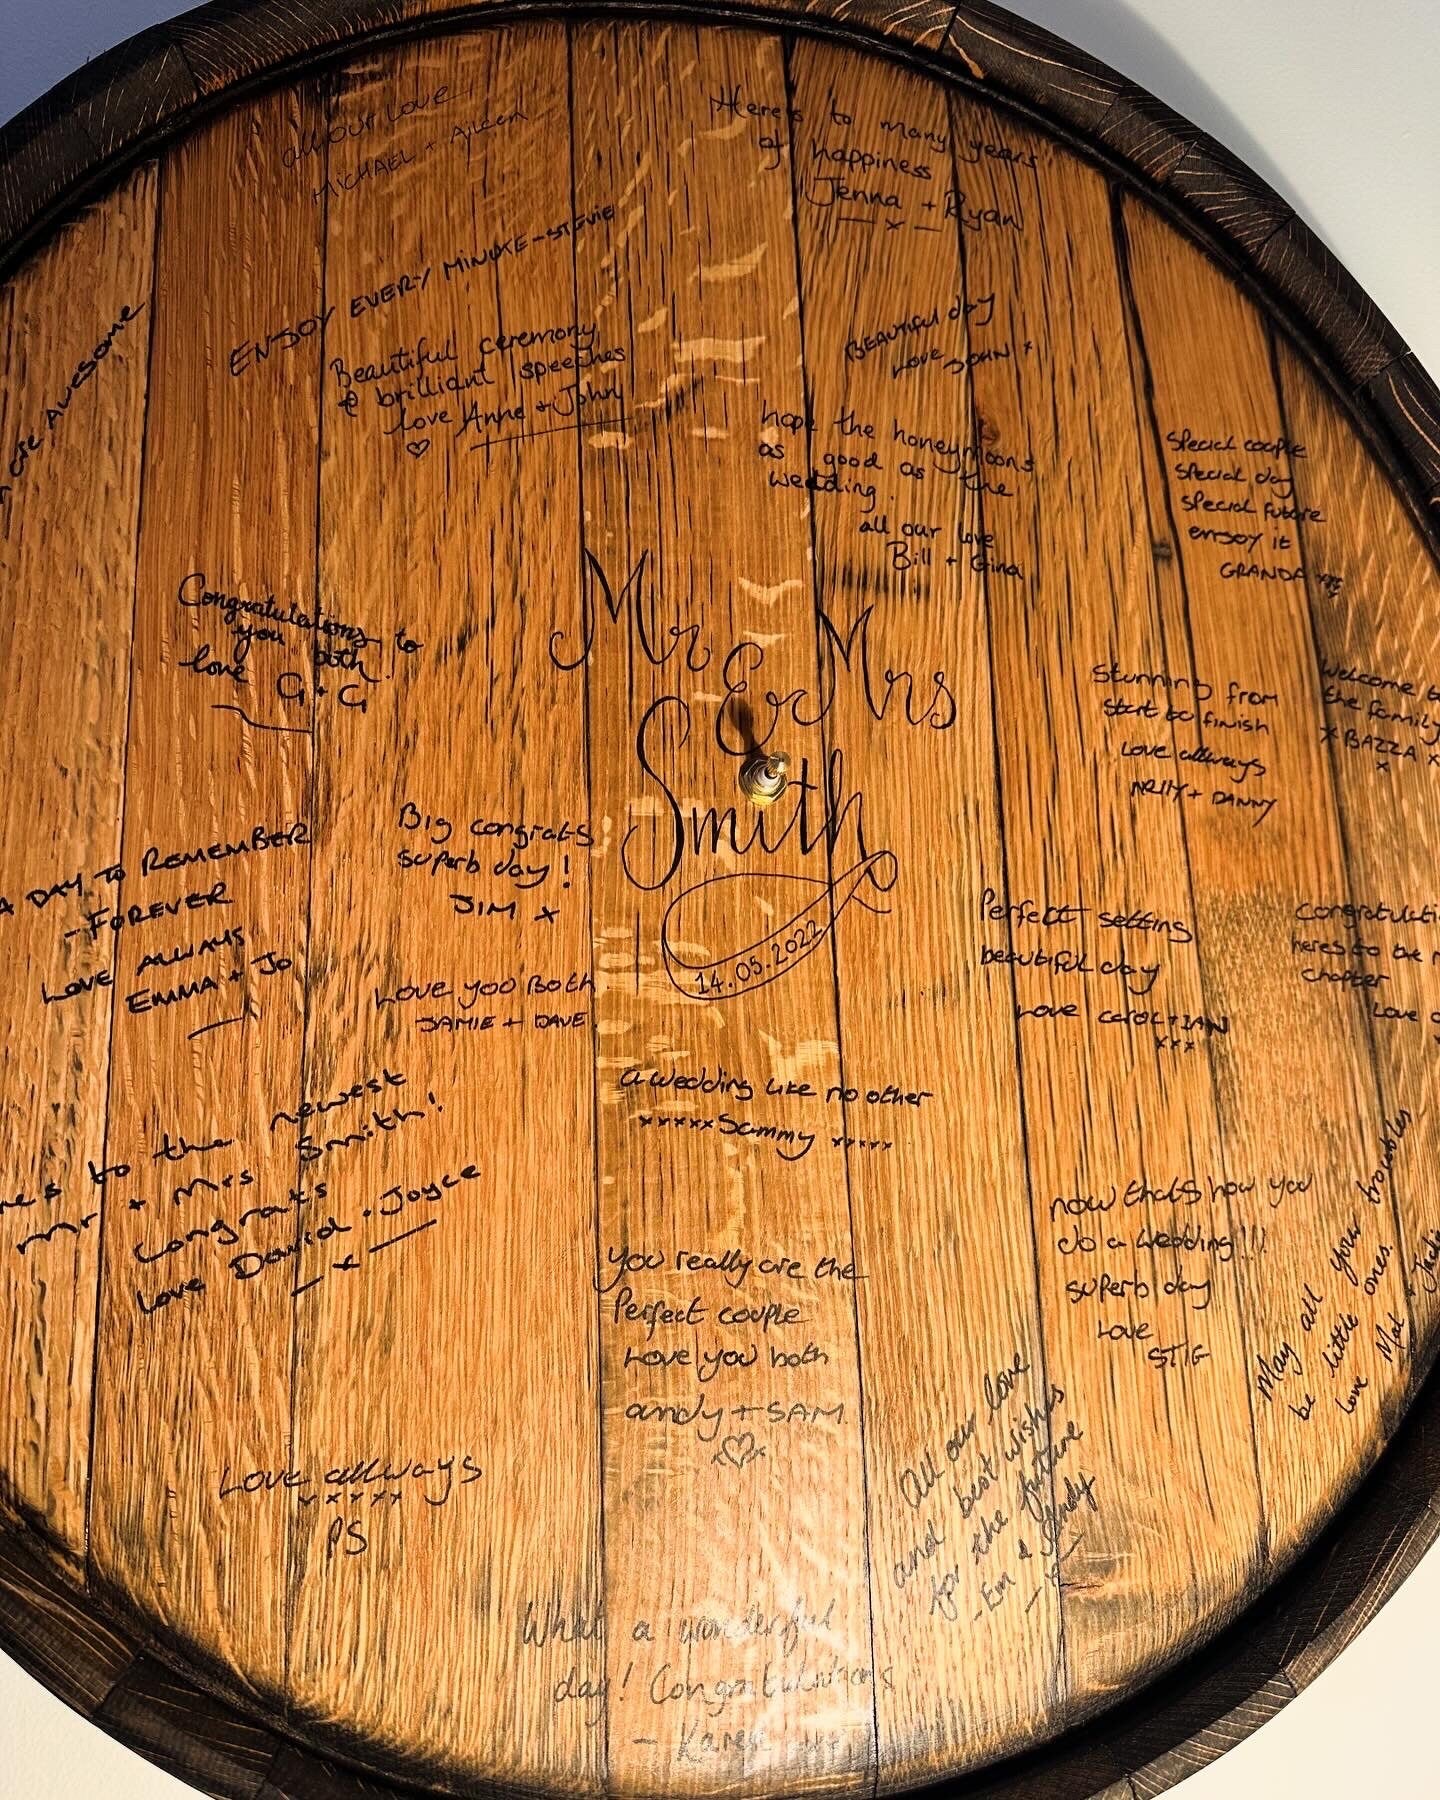 all our love
MICHAEL + Aileen
Here's to many years
of happiness
Jenna + Ryan
x
ENJOY EVERY MINUTE - STEVIE
are AWESOME
Beautiful ceremony
& brilliant speeches
love Anne + John
BEAUTIFUL day
LOVE JOHN x
hope the honeymoons
as good as the
wedding.
all our love
Bill + Gina
Special couple
Special day
Special future
enjoy it
GRANDA xxx
Congratulations to
you both
love G + G
Mr & Mrs
Smith
14.05.2022
Stunning from
start to finish
Love allways
NELLY + DANNY
Welcome
the family
x BAZZA x
x
A DAY TO REMEMBER
- FOREVER
LOVE ALWAYS
EMMA + JO
Big congrats
superb day!
JIM x
Love you Both
JAMIE + DAVE
Perfect setting
beautiful day
Love carol + IAN
xxx
heres to the
chapter
Love
a wedding like no other
xxxxx Sammy xxxxx
to the newest
mr + mrs Smith!
Congrats
love David + Joyce
x
you really are the
Perfect couple
Love you both
andy + SAM
x♡x
now thats how you
do a wedding!!!
superb day
Love
STIG
May all your troubles
be little ones.
Love Mal +
All our love
and best wishes
for the future
- Em & Andy
Love allways
xxxxx
PS
What a wonderful
day! Congratulations
- Karen